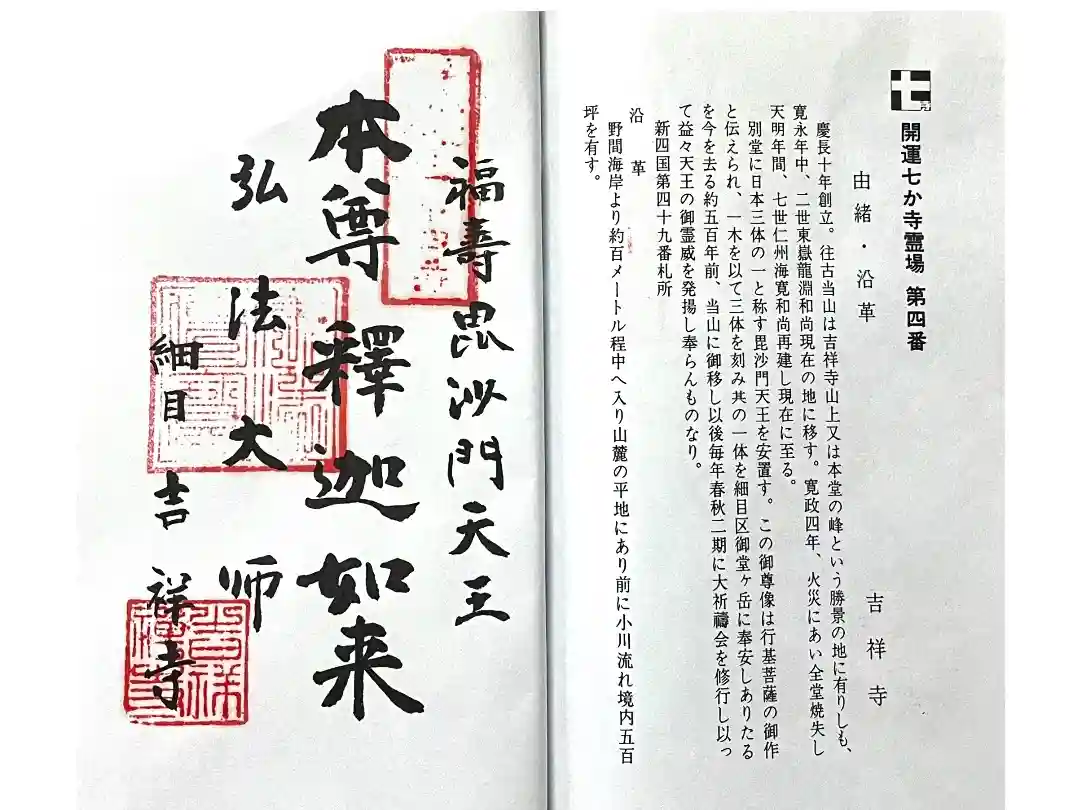 七寺
開運七か寺霊場 第四番
由緒・沿革
吉祥寺
慶長十年創立。往古当山は吉祥寺山上又は本堂の峰という勝景の地に有りしも、
寛永年中、二世東嶽龍淵和尚現在の地に移す。寛政四年、火災にあい全堂焼失し
天明年間、七世仁州海寛和尚再建し現在に至る。
別堂に日本三体の一と称す毘沙門天王を安置す。この御尊像は行基菩薩の御作
と伝えられ、一木を以て三体を刻み其の一体を細目区御堂ヶ岳に奉安しありたる
を今を去る約五百年前、当山に御移し以後毎年春秋二期に大祈禱会を修行し以っ
て益々天王の御霊威を発揚し奉らんものなり。
新四国第四十九番札所
沿革
野間海岸より約百メートル程中へ入り山麓の平地にあり前に小川流れ境内五百
坪を有す。
福壽毘沙門天王
本尊釋迦如来
弘法大师
細目吉祥寺